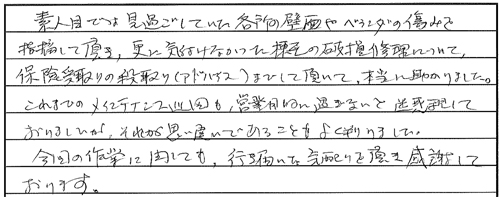 素人目では見過ごしていた各所の壁面やベランダの傷みを
指摘して頂き、更に気付けなかった標色の破損修理について、
保険受取りの段取り(アドバイス)までして頂いて、本当に助かりました。
これまでのメインテナンス巡回も、営業目的に過ぎないと誤認して
おりましたが、それが思い違いであることもよく判りました。
今回の作業に関しても、行き届いた気配りを頂き感謝して
おります。